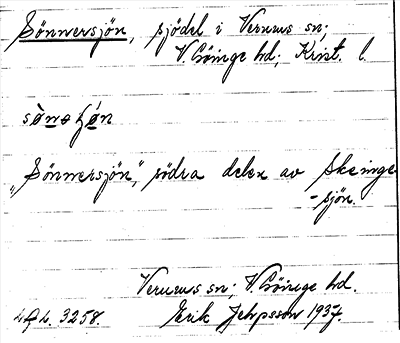 Sönnersjön, sjödel i Verums sn;
V. Göinge hd; Krist. l.
"Sönnersjön", södra delen av Skeinge-
-sjön.
Verums sn; V. Göinge hd.
3258. Erik Jeppsson 1937.